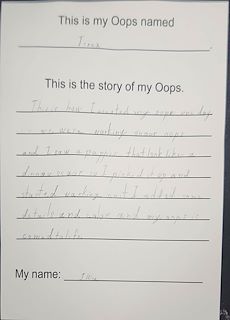 This is my Oops named
This is the story of my Oops.
This is how I created my oops one day
we were working on our oops
and I saw a paper that look like a
dinosaur so I picked it up and
started working on it I added some
details and color and my oops is
comed to life.
My name: